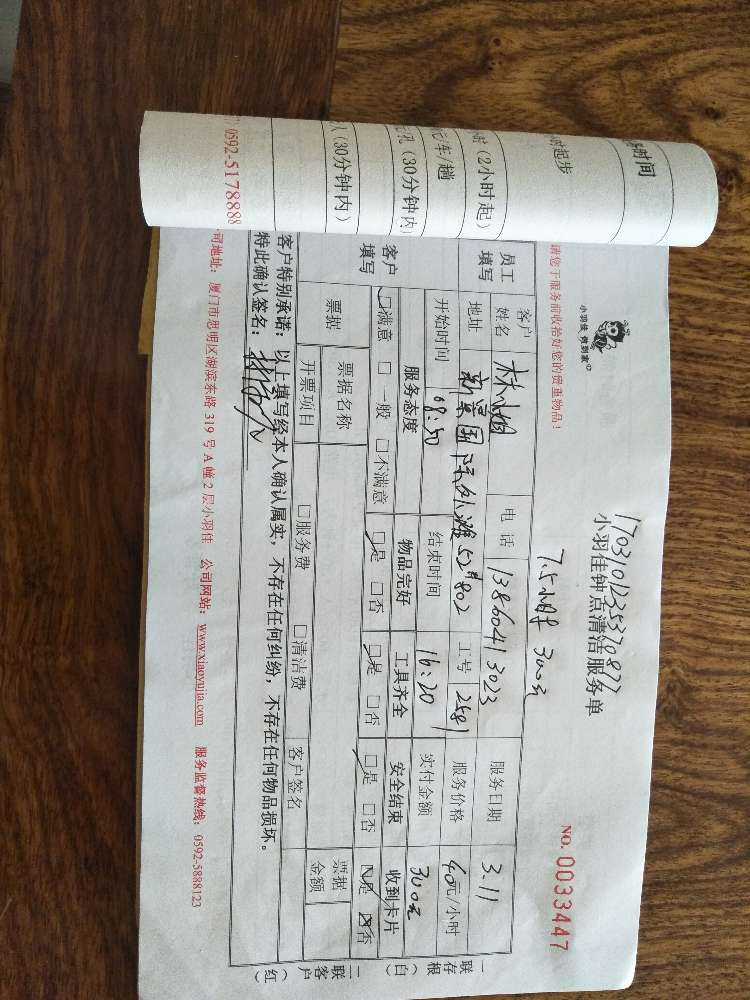 1703101235370877
小羽佳钟点清洁服务单
NO. 0033447
小羽佳 做到家
7.5小时 300元
请您于服务前收拾好您的贵重物品!
员工填写
客户姓名 林小姐 电话 13860413023 服务日期 3.11
地址 52#802 工号 2581 服务价格 40元/小时
开始时间 08:50 结束时间 16:20 实付金额 300元
客户填写
服务态度 物品完好 工具齐全 安全结束 收到卡片
□满意 □一般 □不满意 □是 □否 □是 □否 □是 □否 □是 □否
票据 票据名称 票据金额
开票项目 □服务费 □清洁费 客户签名
客户特别承诺:以上填写经本人确认属实,不存在任何纠纷,不存在任何物品损坏。
特此确认签名:
司地址:厦门市思明区湖滨东路 319 号 A 幢 2 层小羽佳 公司网站:www.xiaoyujia.com 服务监督热线:0592-5888123
一联存根(白)
二联客户(红)
时间
时起步
时(2小时起)
元/车/趟
元/孔(30分钟内)
人(30分钟内)
0592-5178888